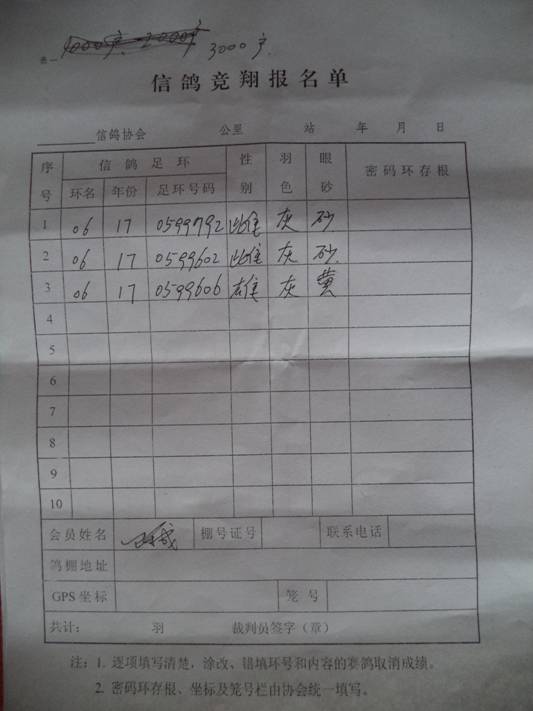 表一 3000户
信鸽竞翔报名单
信鸽协会 公里 站 年 月 日
序号 信鸽足环 性别 羽色 眼砂 密码环存根
环名 年份 足环号码
1 06 17 0599792 雌 灰 砂
2 06 17 0599602 雌 灰 砂
3 06 17 0599606 雄 灰 黄
4
5
6
7
8
9
10
会员姓名 棚号证号 联系电话
鸿棚地址
GPS坐标 笼号
共计: 羽 裁判员签字(章)
注:1. 逐项填写清楚,涂改、错填环号和内容的赛鸽取消成绩。
2. 密码环存根、坐标及笼号栏由协会统一填写。